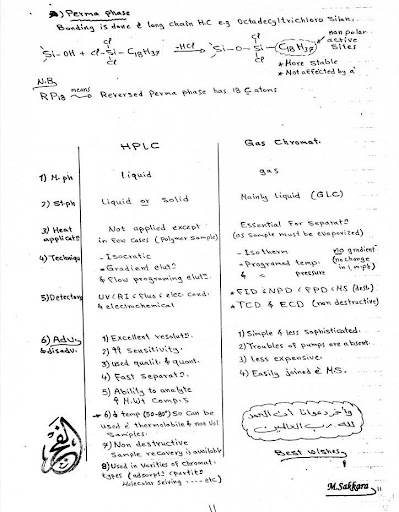 Perma phase
Bonding is done c̄ long chain H.C e.g Octadecyltrichloro Silan.
Si-OH + Cl-Si-C18H37 -HCl→ Si-O-Si-C18H37
Cl Cl Cl Cl
non polar
active
sites
* More stable
* Not affected by
N.B.
RP18 means → Reversed Perma phase has 18 C atoms
HPLC
Gas Chromat.
1) M.ph
Liquid
gas
2) St.ph
Liquid or solid
Mainly Liquid (GLC)
3) Heat
applicatⁿ
Not applied except
in few cases (Polymer sample)
Essential For Separatⁿ
(as sample must be evaporized)
4) Technique
- Isocratic
- Gradient elutⁿ
& Flow programing elutⁿ.
- Isotherm
- Programed temp.
& pressure
no gradient
(no change
in t, mph)
5) Detectors
UV & RI & Fluo & elec cond.
& electrochemical
* FID & NPD & FPD & MS (dest.)
* TCD & ECD (non destructive)
6) Adv.
& disadv.
1) Excellent resolutⁿ.
2) ↑↑ Sensitivity.
3) used qualit. & quant.
4) Fast Separatⁿ.
5) Ability to analyte
↑ M.Wt Comp.s
6) ↓ temp (50-80°) So Can be
used c̄ thermolabile & non Vol
Samples.
7) Non destructive
Sample recovery is available
8) Used in Varities of Chromat.
types (adsorptⁿ, partitⁿ
Molecular Seiving ---- etc)
1) Simple & less sophisticated.
2) Troubles of pumps are absent.
3) less expensive.
4) Easily joined c̄ MS.
وآخر دعوانا أن الحمد
لله رب العالمين
Best Wishes
M.Sakkara
11
11